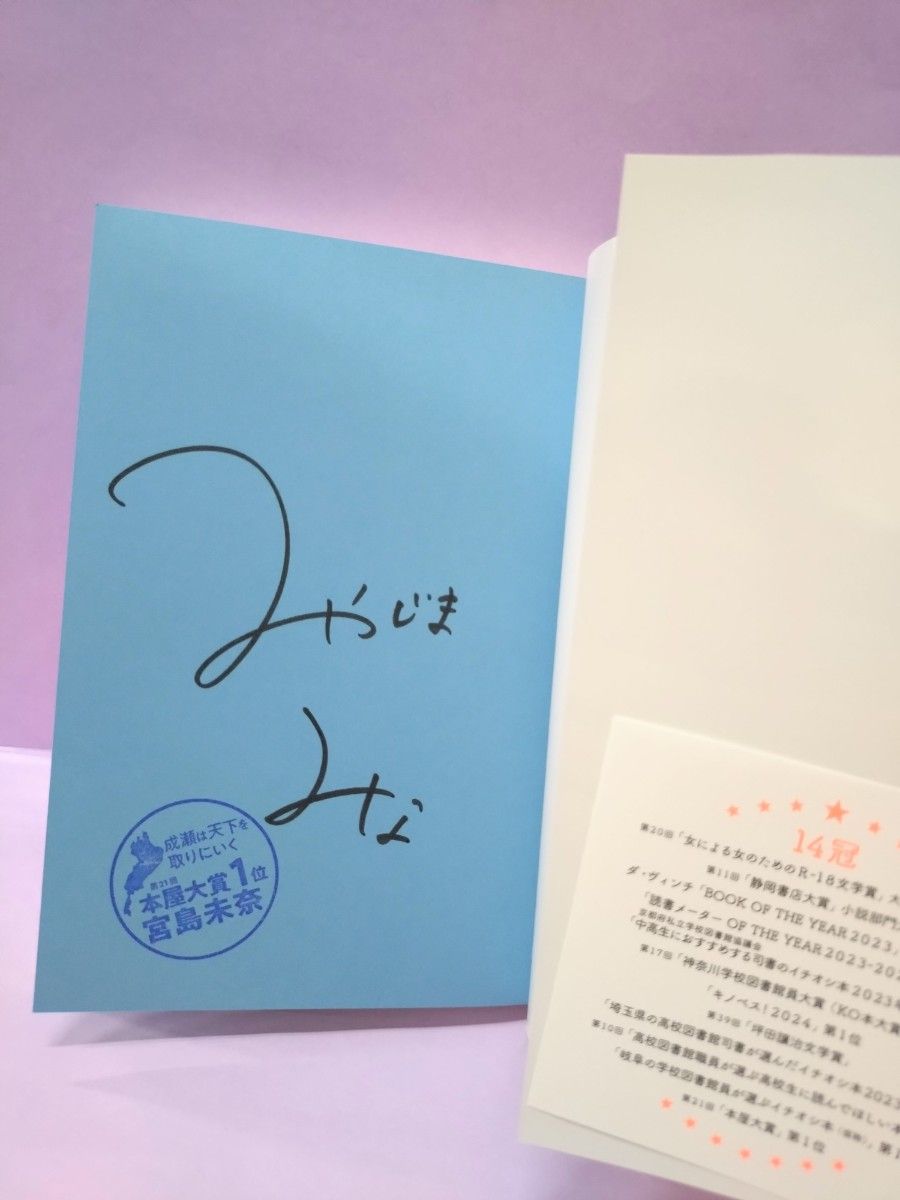 みやじま
みな
成瀬は天下を
取りにいく
第21回
本屋大賞1位
宮島未奈
14冠
第20回「女による女のためのR-18文学賞」大
第11回「静岡書店大賞」小説部門
ダ・ヴィンチ「BOOK OF THE YEAR 2023」
「読書メーター OF THE YEAR 2023-202
京都府私立学校図書館協議会
「中高生におすすめする司書のイチオシ本2023年
第17回「神奈川学校図書館員大賞(KO本大賞
「キノベス!2024」第1位
第39回「坪田譲治文学賞」
「埼玉県の高校図書館司書が選んだイチオシ本2023
第10回「高校図書館職員が選ぶ高校生に読んでほしい本
「岐阜の学校図書館員が選ぶイチオシ本」第1
第21回「本屋大賞」第1位